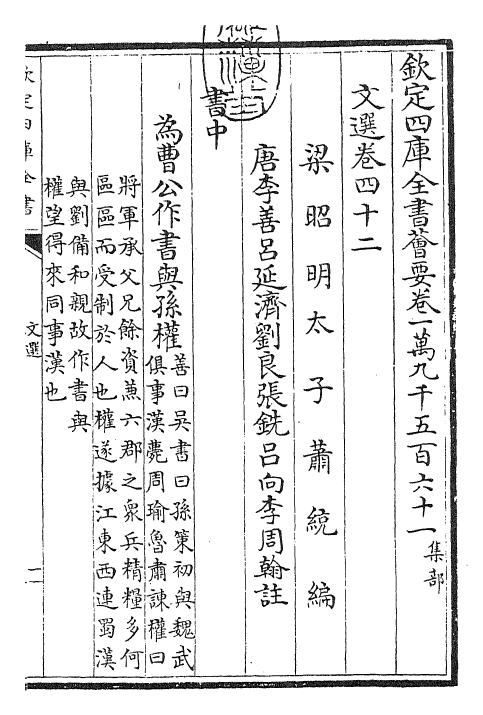 欽定四庫全書薈要卷一萬九千五百六十一 集部
文選卷四十二
梁昭明太子蕭統編
唐李善呂延濟劉良張銑呂向李周翰註
書中
為曹公作書與孫權
善曰吳書曰孫策初與魏武
俱事漢薨周瑜魯肅諫權曰
將軍承父兄餘資兼六郡之衆兵精糧多何
區區而受制於人也權遂據江東西連蜀漢
與劉備和親故作書與
權望得來同事漢也
欽定四庫全書
文選